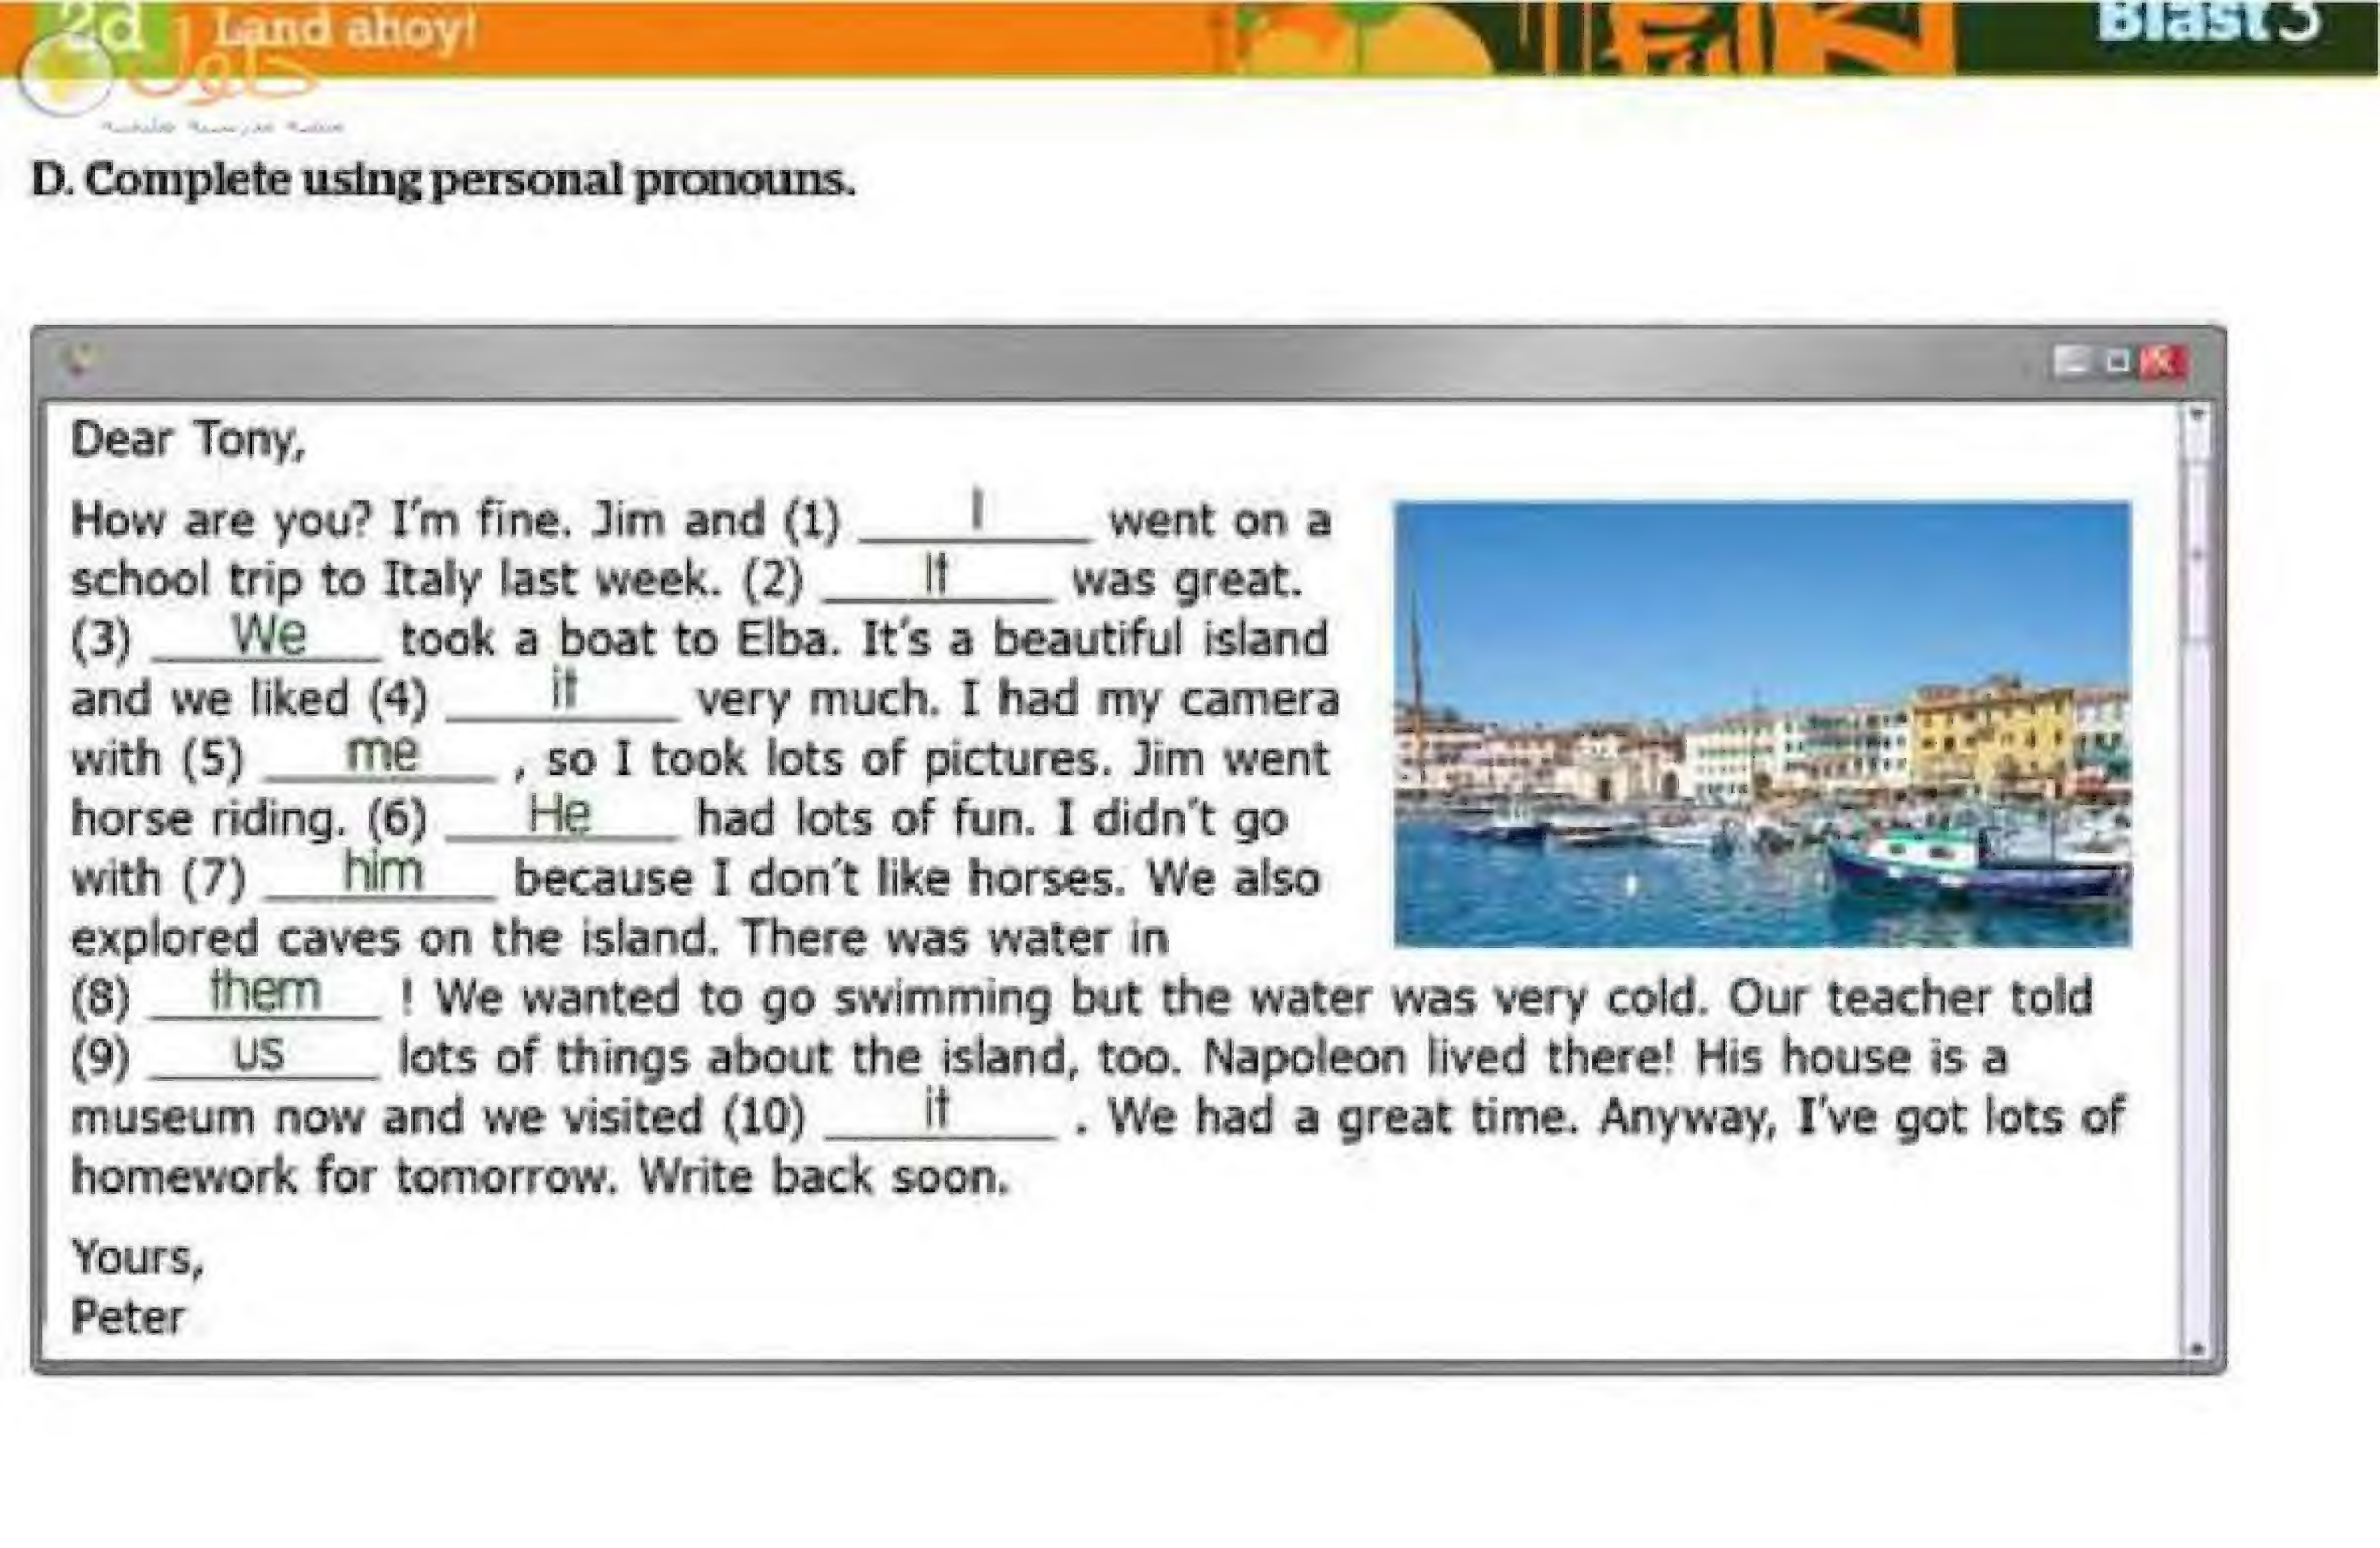 2d Land ahoy!
Blast 3
حلول
D. Complete using personal pronouns.
Dear Tony,
How are you? I'm fine. Jim and (1) I went on a
school trip to Italy last week. (2) It was great.
(3) We took a boat to Elba. It's a beautiful island
and we liked (4) it very much. I had my camera
with (5) me , so I took lots of pictures. Jim went
horse riding. (6) He had lots of fun. I didn't go
with (7) him because I don't like horses. We also
explored caves on the island. There was water in
(8) them ! We wanted to go swimming but the water was very cold. Our teacher told
(9) us lots of things about the island, too. Napoleon lived there! His house is a
museum now and we visited (10) it . We had a great time. Anyway, I've got lots of
homework for tomorrow. Write back soon.
Yours,
Peter